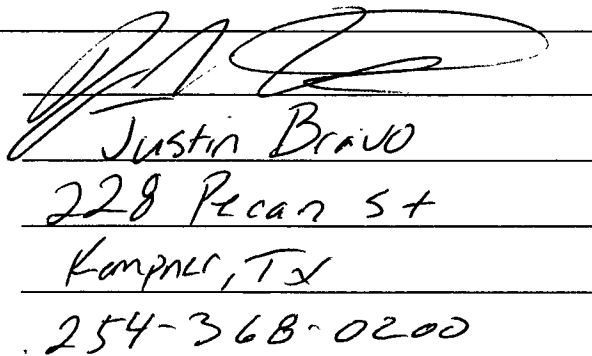 Justin Bravo
228 Pecan St
Kempner, Tx
254-368-0200